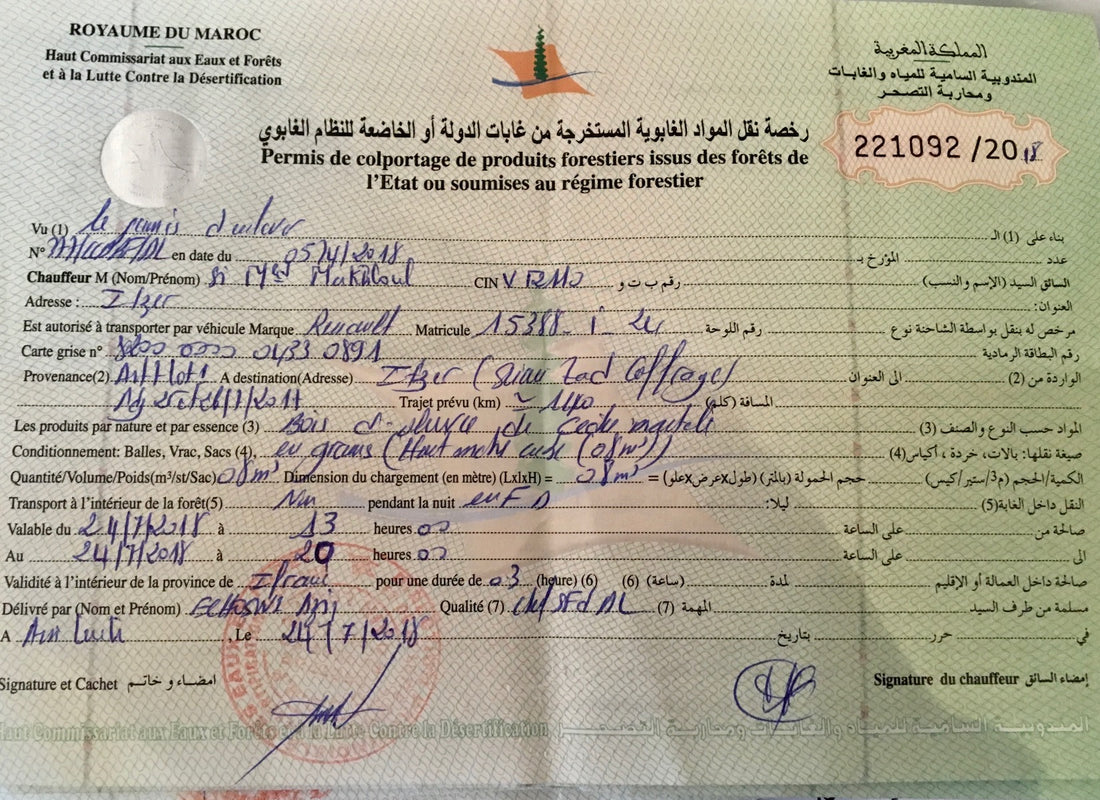 ROYAUME DU MAROC
Haut Commissariat aux Eaux et Forêts
et à la Lutte Contre la Désertification
المملكة المغربية
المندوبية السامية للمياه والغابات
ومحاربة التصحر
رخصة نقل المواد الغابوية المستخرجة من غابات الدولة أو الخاضعة للنظام الغابوي
Permis de colportage de produits forestiers issus des forêts de
l'Etat ou soumises au régime forestier
221092 /20 18
Vu (1) le permis d'enlever بناء على (1) الـ
N° en date du 05/4/2018 المؤرخ بـ عدد
Chauffeur M (Nom/Prénom) Makhloul CIN V رقم ب ت و السائق السيد (الإسم والنسب)
Adresse : Itzer العنوان:
Est autorisé à transporter par véhicule Marque Renault Matricule 15388 - 1 - 24 رقم اللوحة مرخص له بنقل بواسطة الشاحنة نوع
Carte grise n° 0433 0891 رقم البطاقة الرمادية
Provenance(2) A destination(Adresse) Itzer ( Coffrage) الى العنوان الواردة من (2)
Trajet prévu (km) المسافة (كلم)
Les produits par nature et par essence (3) Bois d'œuvre de cèdre المواد حسب النوع والصنف (3)
Conditionnement: Balles, Vrac, Sacs (4) en grumes (Huit mètre cube (08 m³)) صيغة نقلها: بالات، خردة ، أكياس(4)
Quantité/Volume/Poids(m³/st/Sac) 08 m³ Dimension du chargement (en mètre) (LxlxH) = 08 m³ = حجم الحمولة (بالمتر) (طولxعرضxعلو) الكمية/الحجم (م3/ستير/كيس)
Transport à l'intérieur de la forêt(5) Non pendant la nuit ليلا: النقل داخل الغابة(5)
Valable du 24/7/2018 à 13 heures 00 على الساعة صالحة من
Au 24/7/2018 à 20 heures 00 على الساعة الى
Validité à l'intérieur de la province de Ifrane pour une durée de 03 (heure) (6) (6) (ساعة) لمدة صالحة داخل العمالة أو الإقليم
Délivré par (Nom et Prénom) Qualité (7) المهمة (7) مسلمة من طرف السيد
A Ain Leuh Le 24/7/2018 بتاريخ حرر في
Signature et Cachet امضاء و خاتم Signature du chauffeur إمضاء السائق
Haut Commissariat aux Eaux et Forêts et à la Lutte Contre la Désertification المندوبية السامية للمياه والغابات ومحاربة التصحر